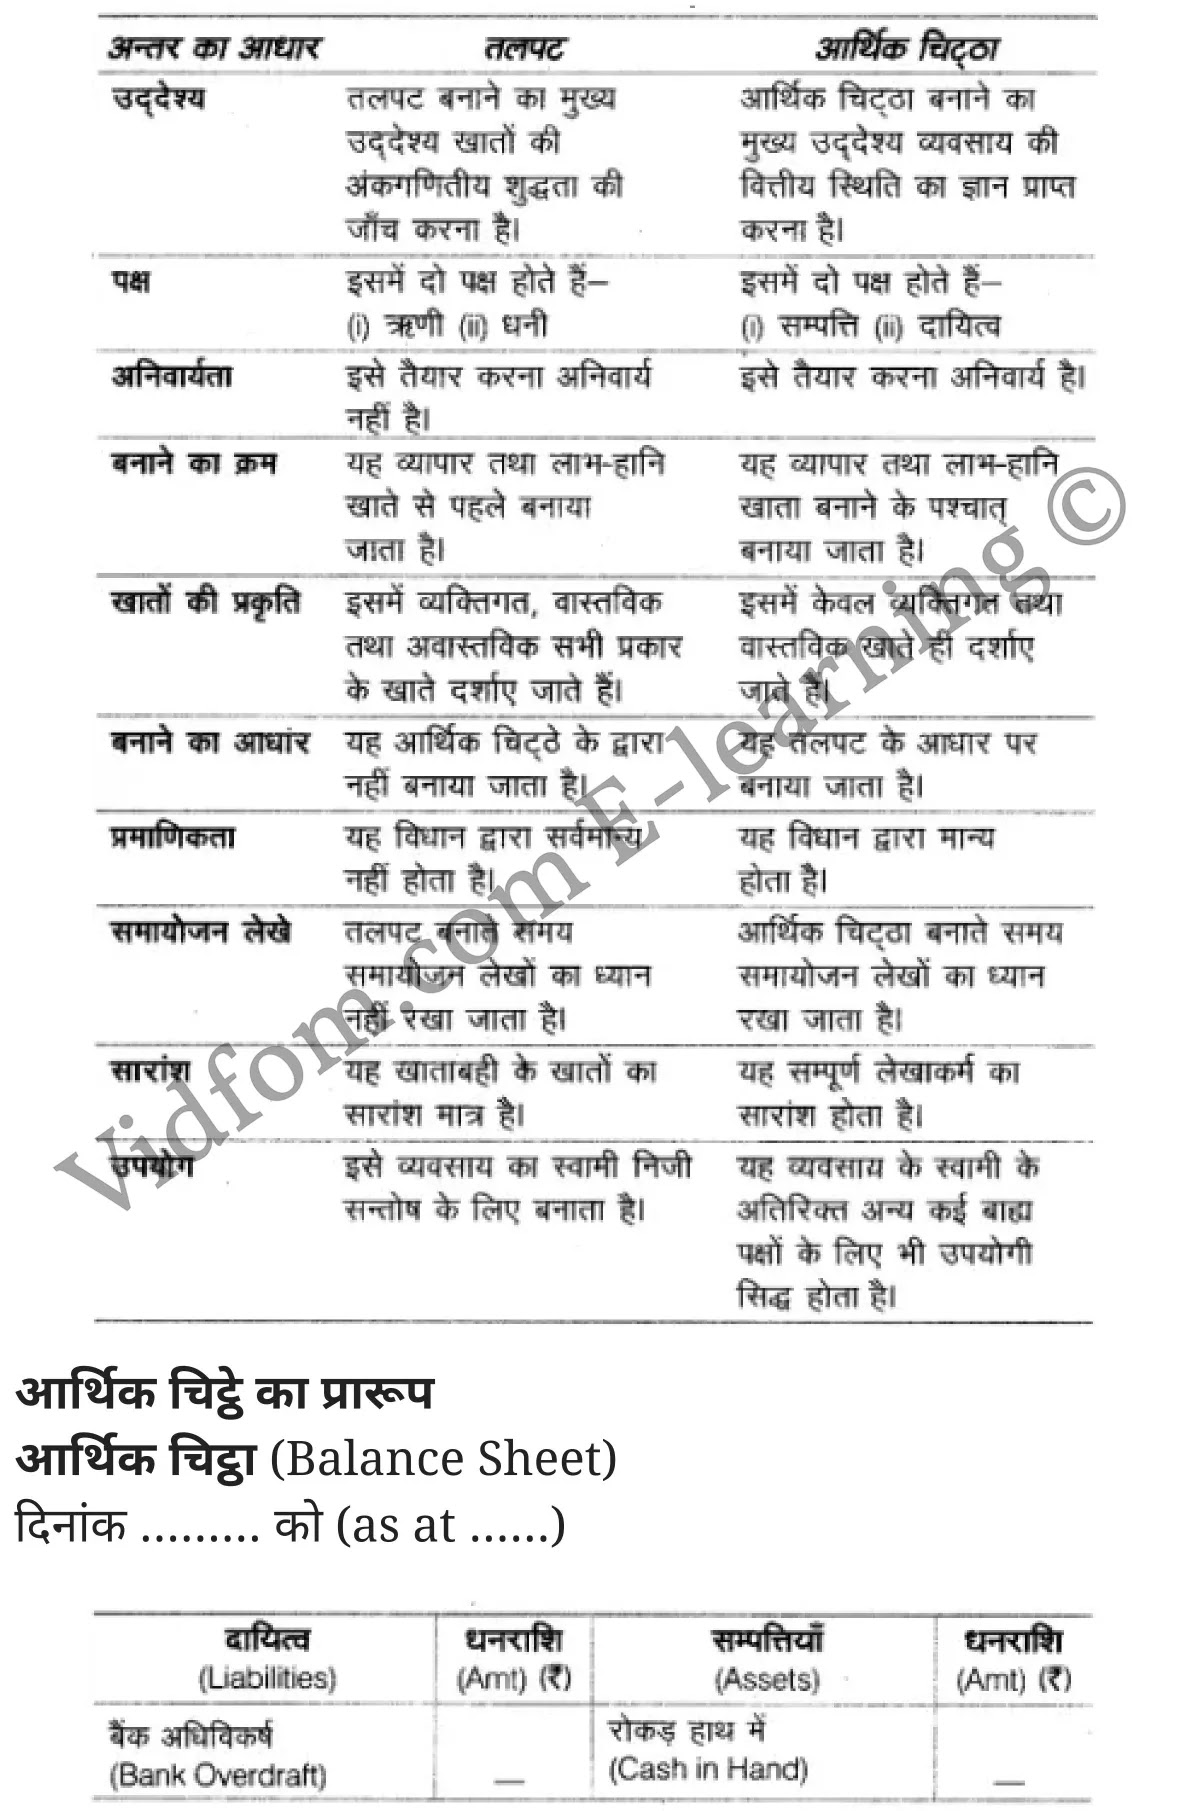 अन्तर का आधार तलपट आर्थिक चिट्ठा
उद्देश्य तलपट बनाने का मुख्य आर्थिक चिट्ठा बनाने का
उद्देश्य खातों की मुख्य उद्देश्य व्यवसाय की
अंकगणितीय शुद्धता की वित्तीय स्थिति का ज्ञान प्राप्त
जाँच करना है। करना है।
पक्ष इसमें दो पक्ष होते हैं– इसमें दो पक्ष होते हैं–
(i) ऋणी (ii) धनी (i) सम्पत्ति (ii) दायित्व
अनिवार्यता इसे तैयार करना अनिवार्य इसे तैयार करना अनिवार्य है।
नहीं है।
बनाने का क्रम यह व्यापार तथा लाभ-हानि यह व्यापार तथा लाभ-हानि
खाते से पहले बनाया खाता बनाने के पश्चात्
जाता है। बनाया जाता है।
खातों की प्रकृति इसमें व्यक्तिगत, वास्तविक इसमें केवल व्यक्तिगत तथा
तथा अवास्तविक सभी प्रकार वास्तविक खाते ही दर्शाए
के खाते दर्शाए जाते हैं। जाते हैं।
बनाने का आधांर यह आर्थिक चिट्ठे के द्वारा यह तलपट के आधार पर
नहीं बनाया जाता है। बनाया जाता है।
प्रमाणिकता यह विधान द्वारा सर्वमान्य यह विधान द्वारा मान्य
नहीं होता है। होता है।
समायोजन लेखे तलपट बनाते समय आर्थिक चिट्ठा बनाते समय
समायोजन लेखों का ध्यान समायोजन लेखों का ध्यान
नहीं रखा जाता है। रखा जाता है।
सारांश यह खाताबही के खातों का यह सम्पूर्ण लेखाकर्म का
सारांश मात्र है। सारांश होता है।
उपयोग इसे व्यवसाय का स्वामी निजी यह व्यवसाय के स्वामी के
सन्तोष के लिए बनाता है। अतिरिक्त अन्य कई बाह्य
पक्षों के लिए भी उपयोगी
सिद्ध होता है।
Vidfom.com E-learning ©
आर्थिक चिट्ठे का प्रारूप
आर्थिक चिट्ठा (Balance Sheet)
दिनांक ……… को (as at ……)
दायित्व धनराशि सम्पत्तियाँ धनराशि
(Liabilities) (Amt) (₹) (Assets) (Amt) (₹)
बैंक अधिविकर्ष रोकड़ हाथ में
(Bank Overdraft) — (Cash in Hand) —